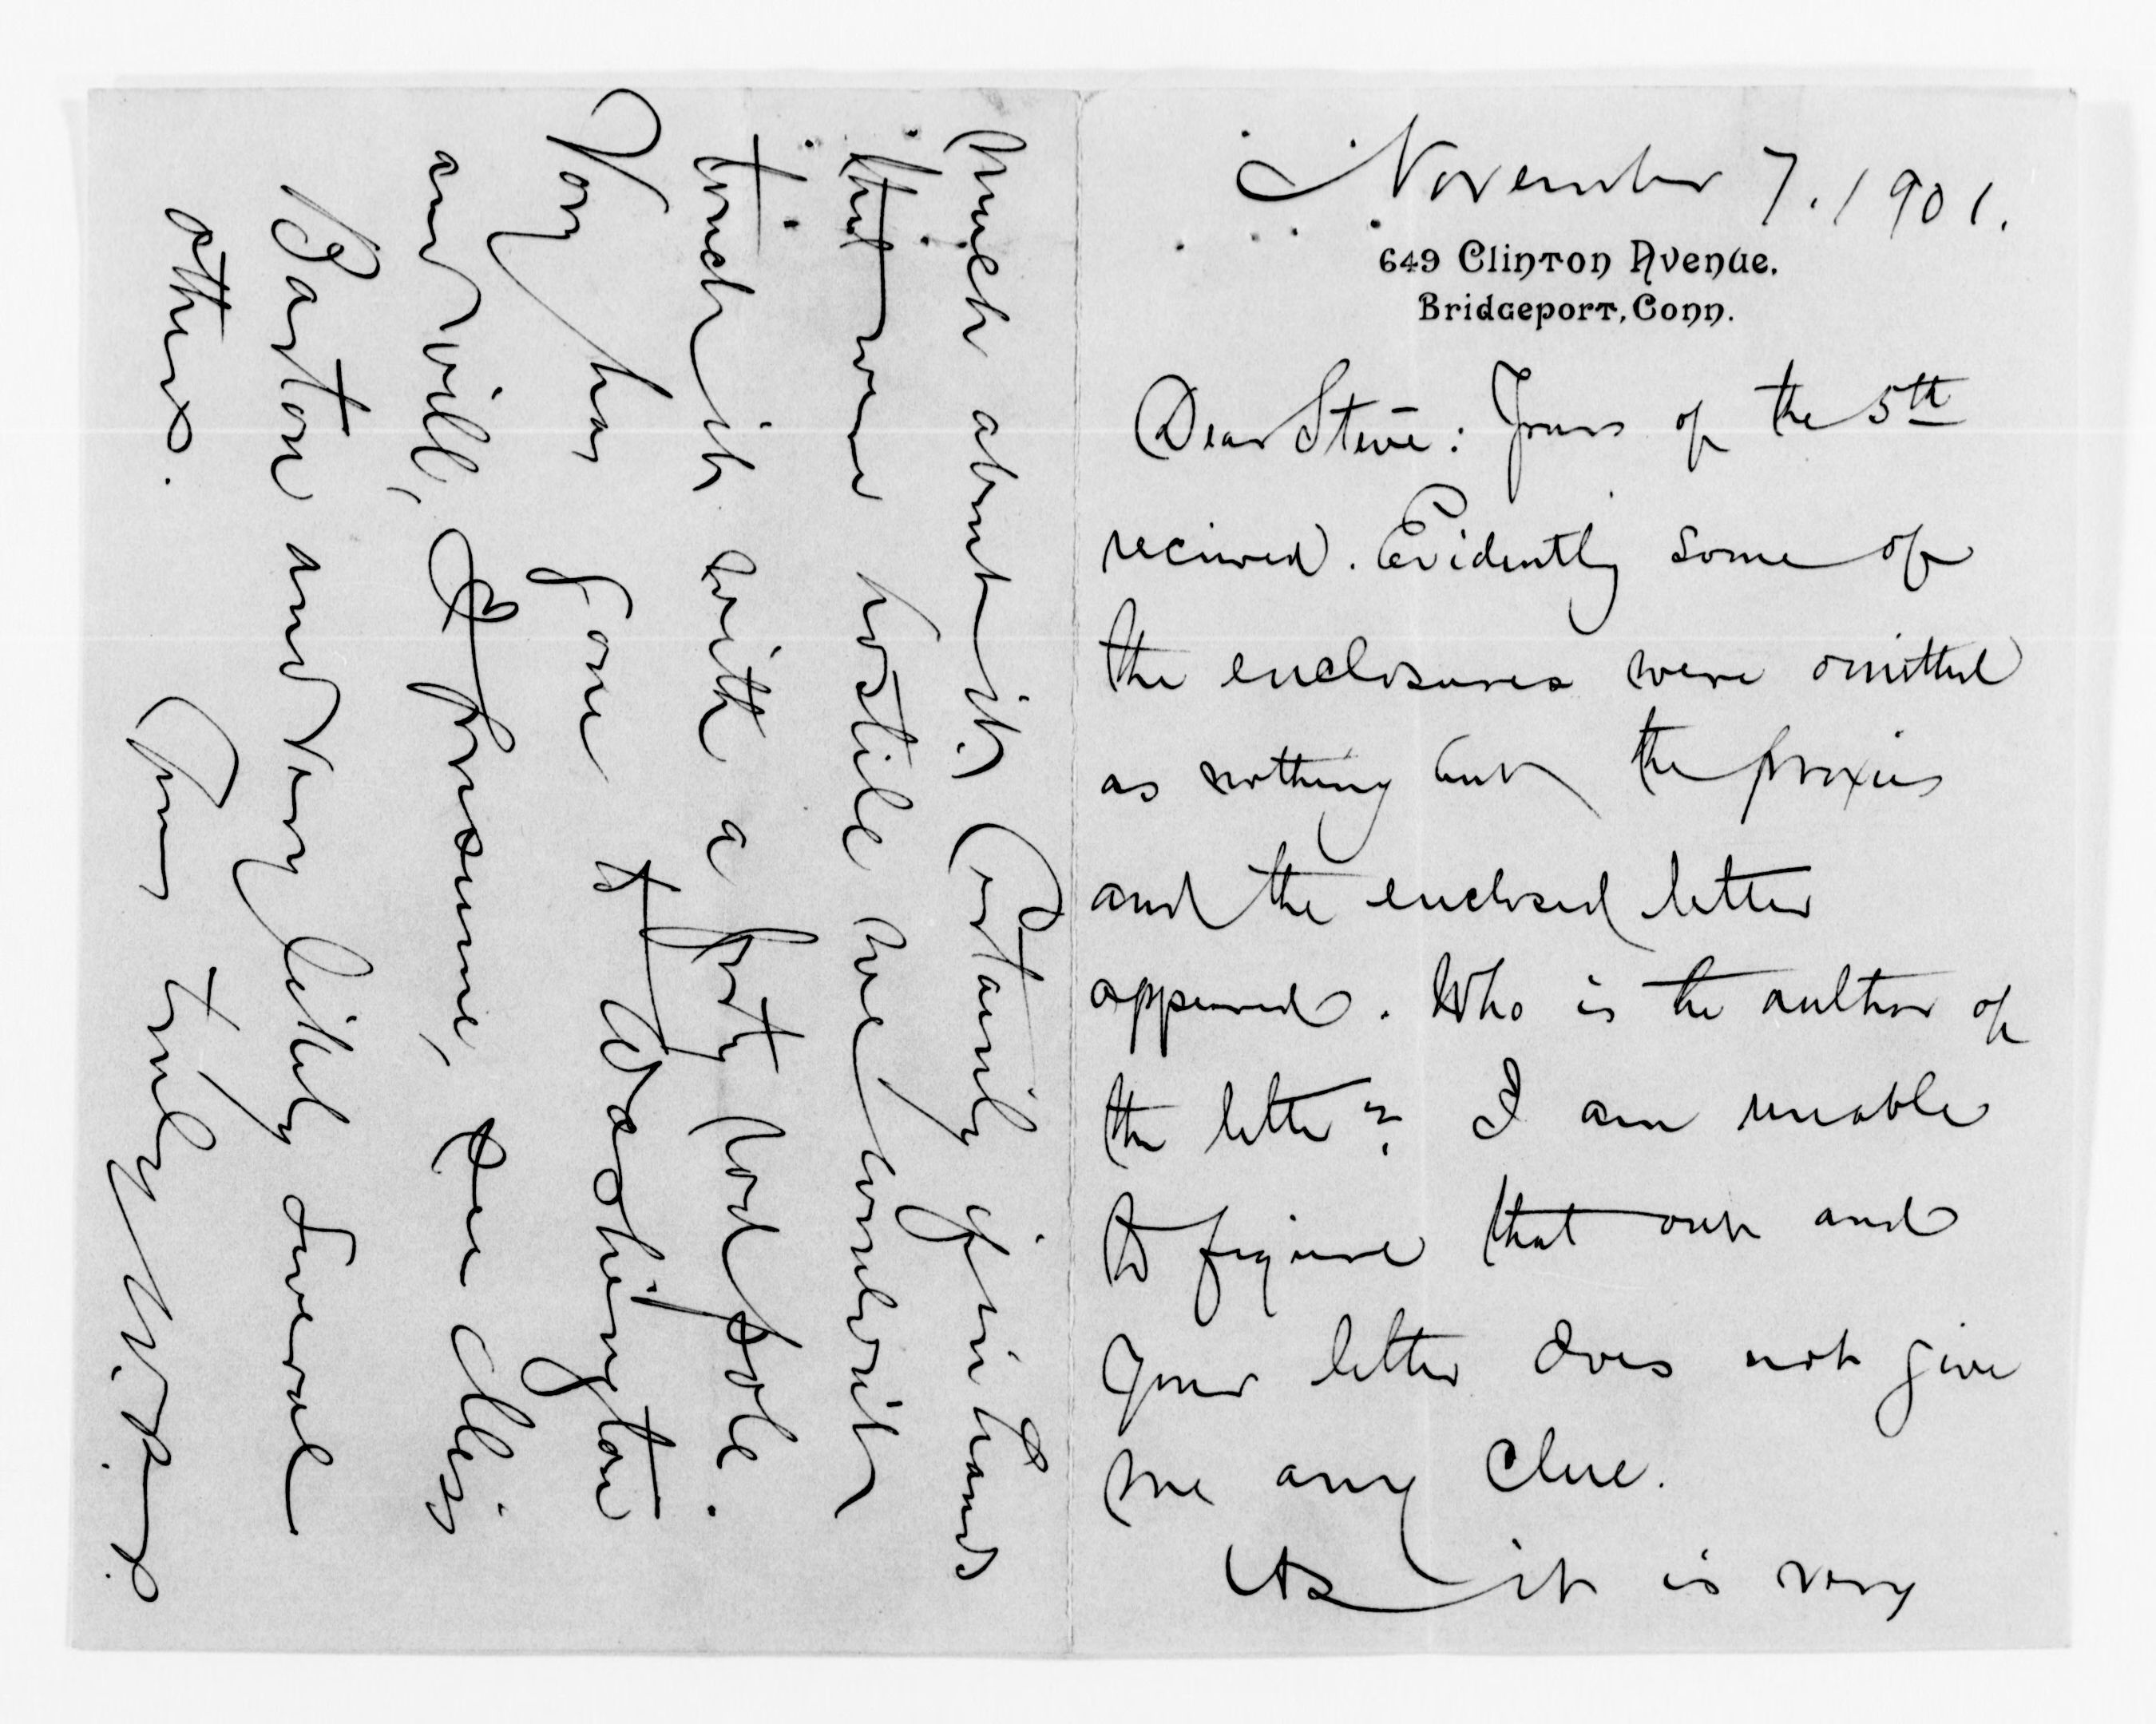 November 7. 1901.
649 Clinton Avenue.
Bridgeport, Conn.
Dear Steve: Yours of the 5th
received. Evidently some of
the enclosures were omitted
as nothing but the proxies
and the enclosed letter
appeared. Who is the author of
the letter? I am unable
to figure that out and
your letter does not give
me any clue.
As it is very
much about it. Certainly if in hands
that were hostile we wouldn't
touch it with a forty rod pole.
Von has gone to Washington
and will, I presume, see Miss
Barton and very likely several
others.
Yours truly